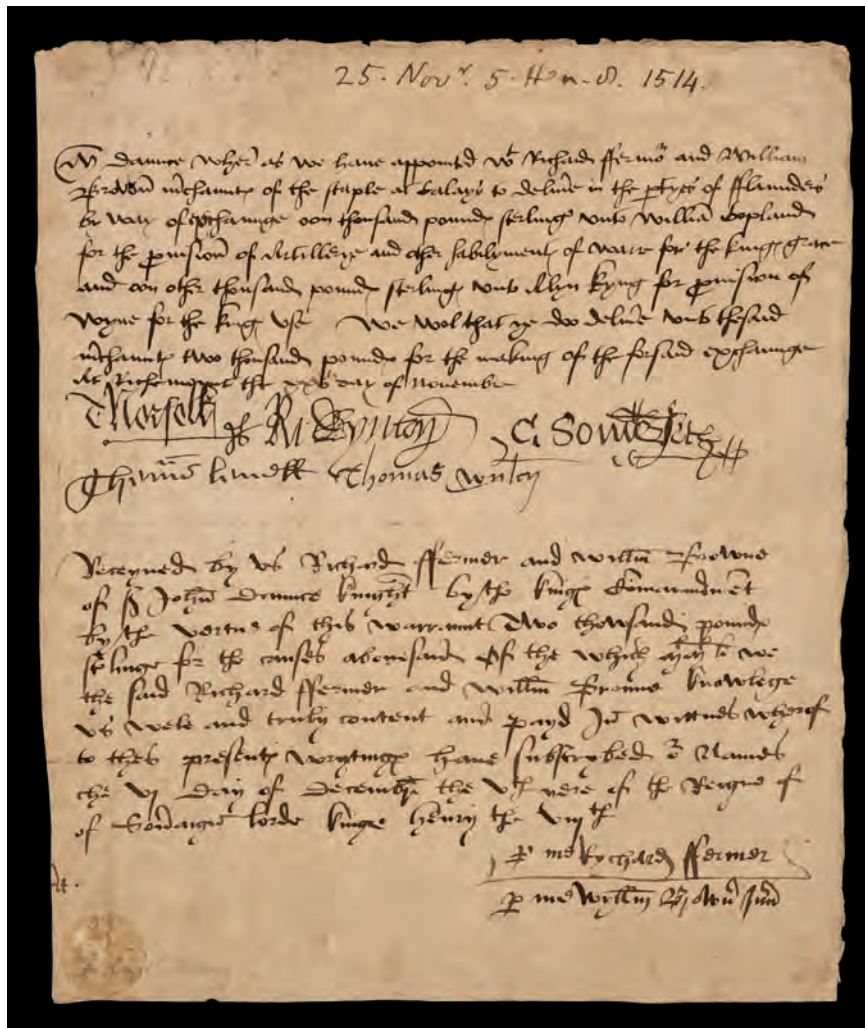 25. Novr. 5. Hen. 8. 1514.
Mr Daunce wher as we have appointed wt Richard ffermor and William
Brown mchaunts of the staple at Calays to delive in the ptyes of fflaunders
by way of exchaunge oon thousand pounds sterling unto William Copland
for the provision of Artillerye and other habilyments of warre for the kings grace
and oon other thousand pounds sterling unto Alyn Kyng for provision of
Wyne for the kings use We wol that ye do delive unto thesaid
mchaunts two thousand pounds for the making of the forsaid exchaunge
At Richemount the xxv day of Novembre
T Norfolk Ri Wynton C Somerset
Thomas Lovell Thomas
Receyved by us Richard ffermer and Willm Browne
of Sr John Daunce knyght by the kings Comaundment
by the vertue of this warraunt Two thowsand pounds
sterlinge for the causes abovesaid Of the which we
the said Richard ffermer and Willm Browne knowlege
us wele and truly content and payd In wittnes wherof
to thes presents wrytings have subscrybed names
the vj day of Decembre the vth yere of the Reigne of
of Soveraigne lorde kinge henry the viijth
P me Rychard ffermer
P me Wyllm Brown